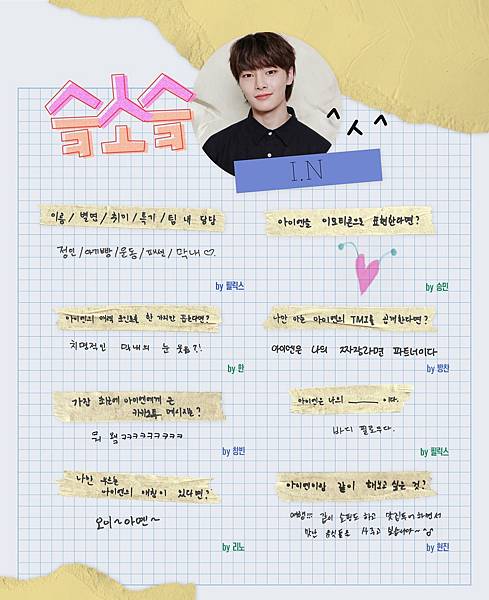 슼소슼
ㅅㅅㅅ
I.N
이름 / 별명 / 취미 / 특기 / 팀 내 담당
정인 / 아기빵 / 운동 / 패션 / 막내 ♡.
by 필릭스
아이엔을 이모티콘으로 표현한다면?
by 승민
아이엔의 매력 포인트를 한 가지만 꼽는다면?
치명적인 막내의 눈웃음?!
by 한
나만 아는 아이엔의 TMI를 공개한다면?
아이엔은 나의 짜장라면 파트너이다
by 방찬
가장 최근에 아이엔에게 온
카카오톡 메시지는?
뭐 햄ㅋㅋㅋㅋㅋㅋㅋㅋ
by 창빈
아이엔은 나의 ______ 이다.
바디 필로우다.
by 필릭스
나만 부르는
아이엔의 애칭이 있다면?
오이~아옌~
by 리노
아이엔이랑 같이 해보고 싶은 것?
여행!!! 같이 쇼핑도 하고 맛집투어 하면서
맛난 음식들을 사주고 싶습니다~
by 현진